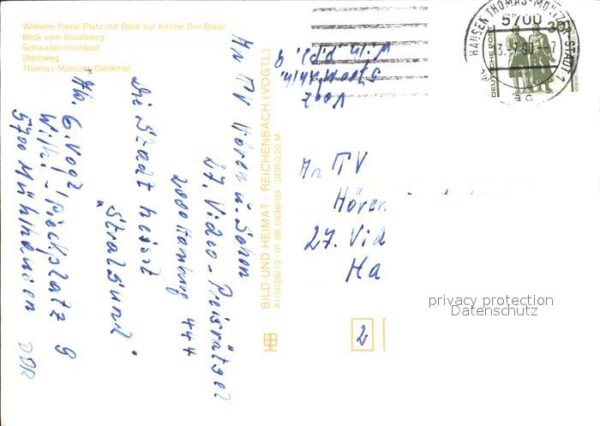 Wilhelm-Pieck-Platz mit Blick zur Kirche Divi Blasii
Blick vom Stadtberg
Schwanenteichbad
Steinweg
Thomas-Müntzer-Denkmal
An TV Hören u. Sehen
27. Video-Preisrätsel
2000 Hamburg 444
Die Stadt heisst
"Stralsund"
Abs. G. Vogt
Wilh.-Pieckplatz 9
5700 Mühlhausen DDR
BILD UND HEIMAT · REICHENBACH (VOGTL)
MÜHLHAUSEN THOMAS-MÜNTZER-STADT 1
5700
DEUTSCHE POST
30
An TV
Hören
27. Vid
Ha
privacy protection
Datenschutz
2